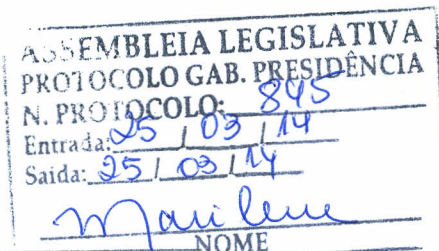 ASSEMBLEIA LEGISLATIVA
PROTOCOLO GAB. PRESIDÊNCIA
N. PROTOCOLO: 845
Entrada: 25 / 03 / 14
Saida: 25 / 03 / 14
Marilene
NOME